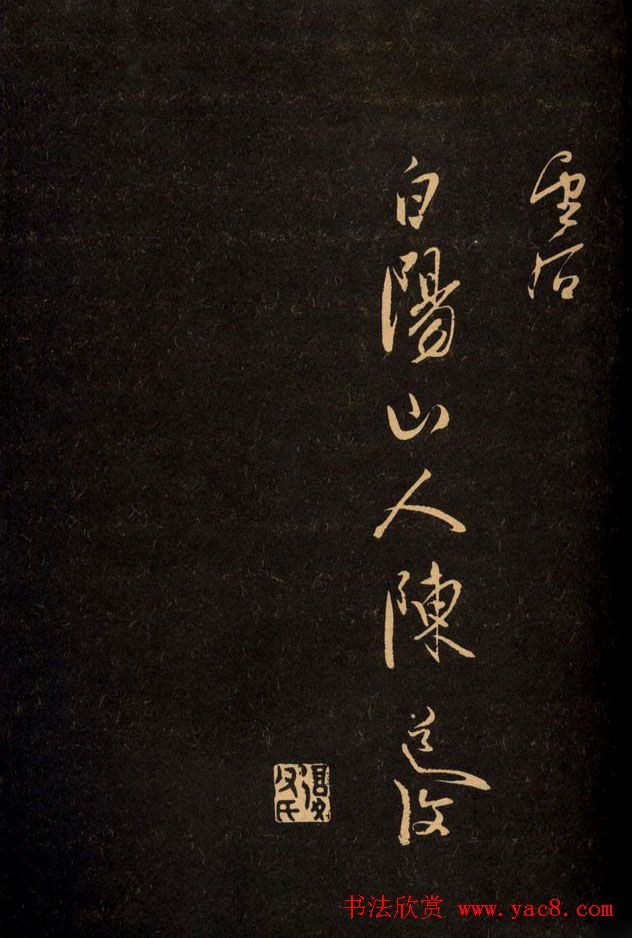 石
白陽山人陳道復
书法欣赏 www.yac8.com